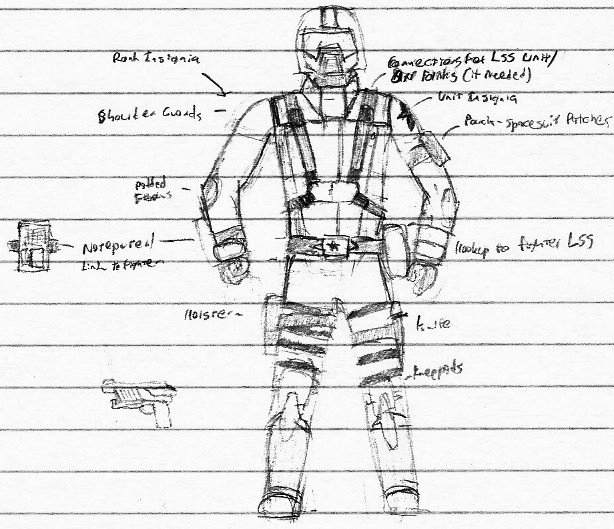 Rank Insignia
Connections for LSS Unit/
(if needed)
Unit Insignia
Shoulder Guards
Pouch-Spacesuit Patches
Padded
Link to Fighter
Hookup to fighter LSS
Holster
Knife
Kneepads